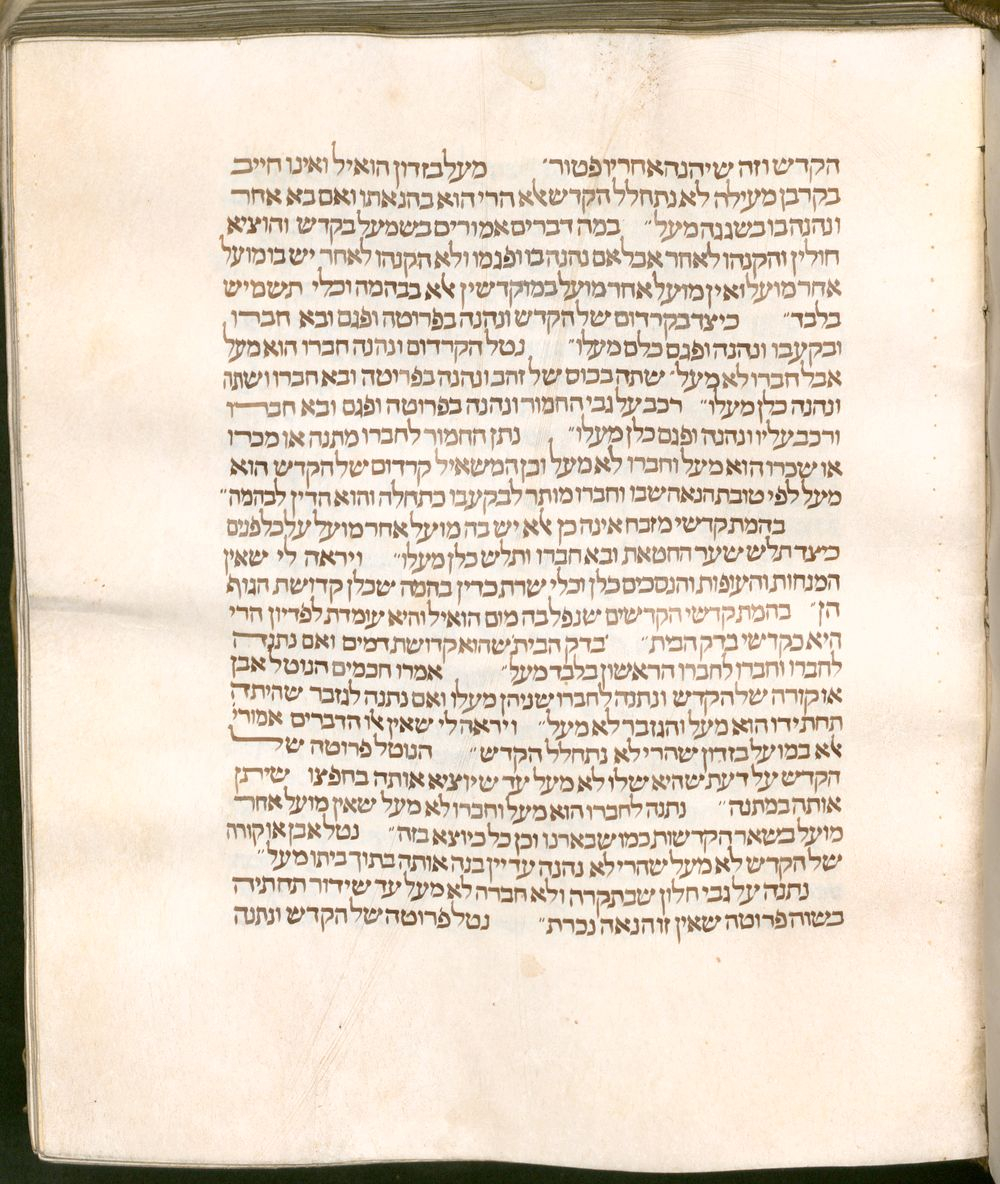 הקדש וזה שיהנה אחריו פטור״ מעל בזדון הואיל ואינו חייב
בקרבן מעילה לא נתחלל הקדש אלא הרי הוא בהנאתו ואם בא אחר
ונהנה בו בשגגה מעל״ במה דברים אמורים בשמעל בקדש והוציא
חולין והקנהו לאחר אבל אם נהנה בו ופגמו ולא הקנהו לאחר יש בו מועל
אחר מועל ואין מועל אחר מועל במוקדשין אלא בבהמה וכלי תשמיש
בלבד״ כיצד בקרדום של הקדש ונהנה בפרוטה ופגם ובא חברו
ובקע בו ונהנה ופגם כלם מעלו״ נטל הקרדום ונהנה חברו הוא מעל
אבל חברו לא מעל׳ שתה בכוס של זהב ונהנה בפרוטה ובא חברו ושתה
ונהנה כלן מעלו״ רכב על גבי החמור ונהנה בפרוטה ופגם ובא חברו
ורכב עליו ונהנה ופגם כלן מעלו״ נתן החמור לחברו מתנה או מכרו
או שכרו הוא מעל וחברו לא מעל וכן המשאיל קרדום של הקדש הוא
מעל לפי טובת הנאה שבו וחברו מותר לבקע בו כתחלה והוא הדין לבהמה״
בהמת קדשי מזבח אינה כן אלא יש בה מועל אחר מועל על כל פנים
כיצד תלש שער החטאת ובא חברו ותלש כלן מעלו״ ויראה לי שאין
המנחות והעופות והנסכים כלן וכלי שרת כדין בהמה שכלן קדושת הגוף
הן״ בהמת קדשי הקדשים שנפל בה מום הואיל והיא עומדת לפדיון הרי
היא כקדשי בדק הבית״ בדק הבית שהוא קדושת דמים ואם נתנה
לחברו וחברו לחברו הראשון בלבד מעל״ אמרו חכמים הנוטל אבן
או קורה של הקדש ונתנה לחברו שניהן מעלו ואם נתנה לגזבר שהיתה
תחת ידו הוא מעל והגזבר לא מעל״ ויראה לי שאין אלו הדברים אמורי׳
אלא במועל בזדון שהרי לא נתחלל הקדש״ הנוטל פרוטה של
הקדש על דעת שהיא שלו לא מעל עד שיוציא אותה בחפצו שיתן
אותה במתנה״ נתנה לחברו הוא מעל וחברו לא מעל שאין מועל אחר
מועל בשאר הקדשות כמו שבארנו וכן כל כיוצא בזה״ נטל אבן או קורה
של הקדש לא מעל שהרי לא נהנה עדיין בנה אותה בתוך ביתו מעל״
נתנה על גבי חלון שבתקרה ולא חברה לא מעל עד שידור תחתיה
בשוה פרוטה שאין זו הנאה נכרת״ נטל פרוטה של הקדש ונתנה